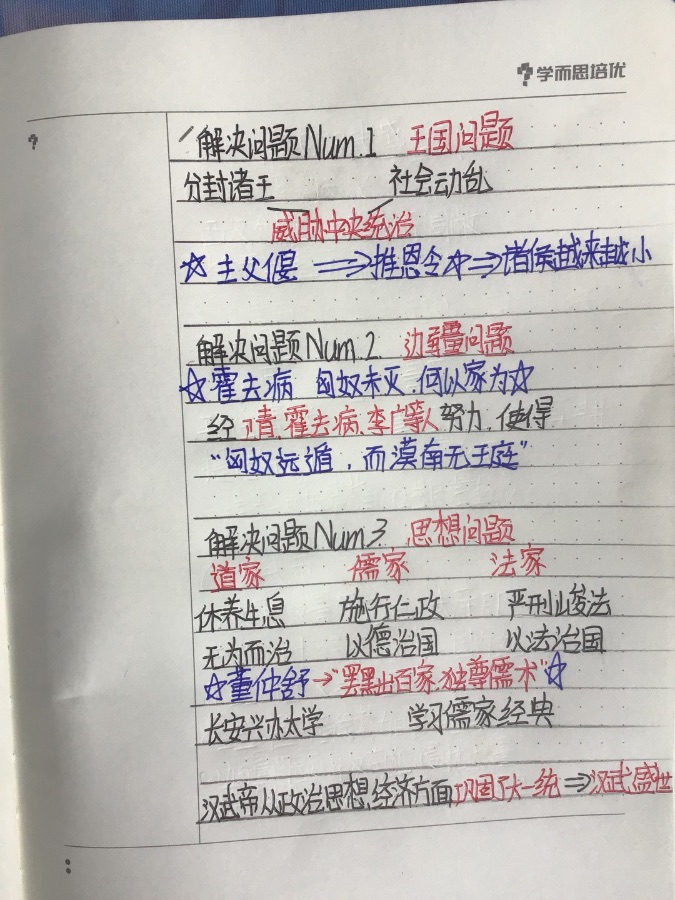 学而思培优
解决问题Num.1 王国问题
分封诸王 社会动乱
威胁中央统治
☆主父偃 ⇒推恩令⇒诸侯越来越小
解决问题Num.2. 边疆问题
☆霍去病 匈奴未灭,何以家为☆
经卫青、霍去病、李广等人努力,使得
“匈奴远遁,而漠南无王庭”
解决问题Num.3. 思想问题
道家 儒家 法家
休养生息 施行仁政 严刑峻法
无为而治 以德治国 以法治国
☆董仲舒→“罢黜百家,独尊儒术”☆
长安兴办太学 学习儒家经典
汉武帝从政治思想,经济方面巩固了大一统⇒汉武盛世